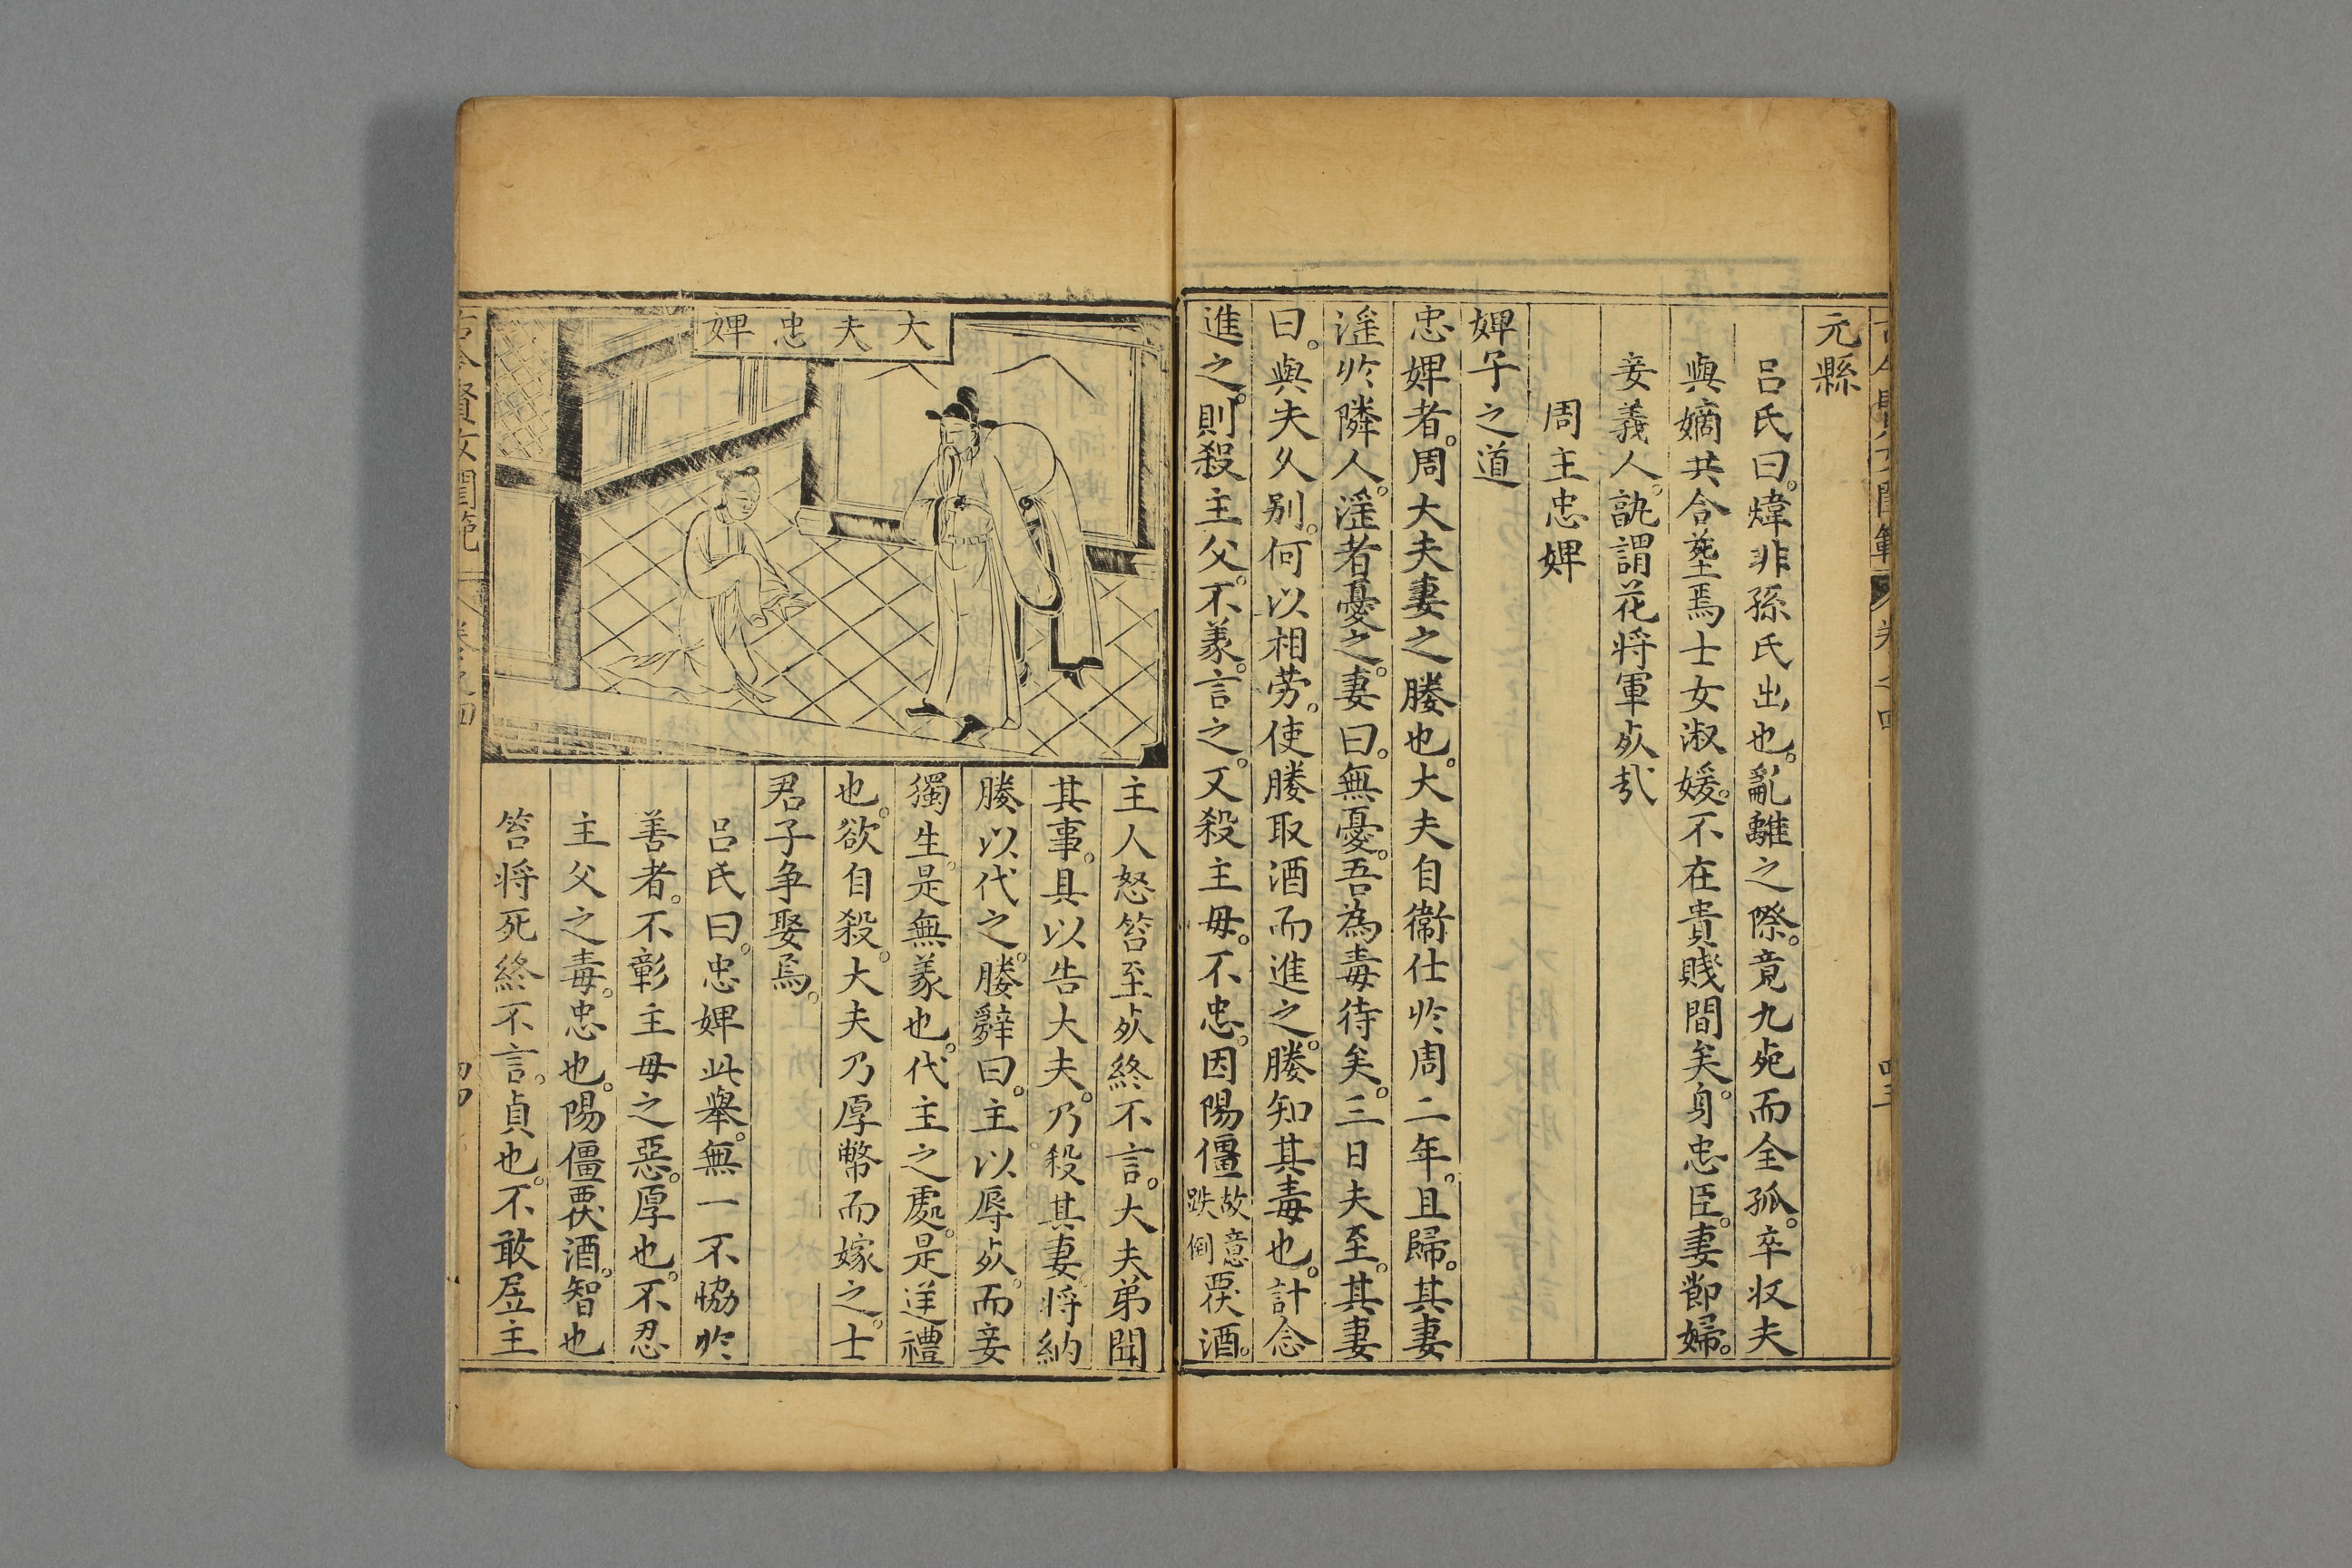 元縣
呂氏曰。煒非孫氏出也。亂離之際。竟九死而全孤。卒收夫
與嫡共合塟焉士女淑媛。不在貴賤間矣。身忠臣。妻節婦。
妾義人。訛謂花將軍死㦲
周主忠婢
婢子之道
忠婢者。周大夫妻之媵也。大夫自衛仕扵周二年。且歸。其妻
滛扵隣人。滛者憂之。妻曰。無憂。吾為毒待矣。三日夫至。其妻
曰。與夫久别。何以相劳。使媵取酒而進之。媵知其毒也。計念
進之。則殺主父。不義。言之。又殺主毋。不忠。因陽僵故意跌倒覆酒。
大夫忠婢
主人怒笞至死終不言。大夫弟聞
其事。具以告大夫。乃殺其妻將納
媵以代之。媵辭曰。主以辱死。而妾
獨生。是無義也。代主之處。是逆禮
也。欲自殺。大夫乃厚幣而嫁之。士
君子争娶焉。
呂氏曰。忠婢此舉。無一不恊扵
善者。不彰主毋之惡。厚也。不忍
主父之毒。忠也。陽僵覆酒。智也
笞将死終不言。貞也。不敢居主
古今賢女閨範
卷之四